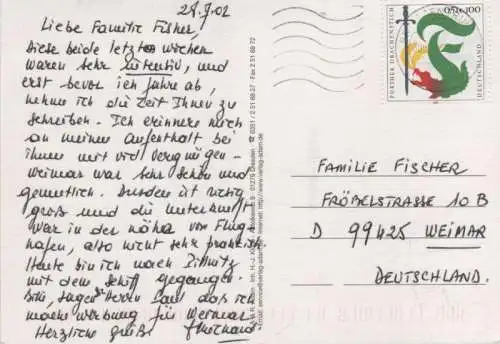 28.7.02
Liebe Familie Fisher,
Diese beide letzten wochen
waren sehr intensiv, und
erst bevor ich fahre ab,
nehme ich die Zeit Ihnen zu
schreiben. Ich erinnere mich
an meinen Aufenthalt bei
ihnen mit viel Vergnügen -
Weimar war sehr schön und
gemütlich. Dresden ist richtig
groß und die unterkunft
war in der nähe vom Flug-
hafen, also nicht sehr praktisch.
Heute bin ich nach Pillnitz
mit dem Schiff gegangen.
Bitte, sagen Herrn Paul daß ich
mache werbung für Weimar
Herzliche grüße
Fax 2 51 68 72
0351 / 2 51 68 37
01279 Dresden
Internet: http://www.verlag-adam.de
FURTHER DRACHENSTICH
DEUTSCHLAND
0,51+100
FAMILIE FISCHER
FRÖBELSTRASSE 10 B
D 99425 WEIMAR
DEUTSCHLAND.